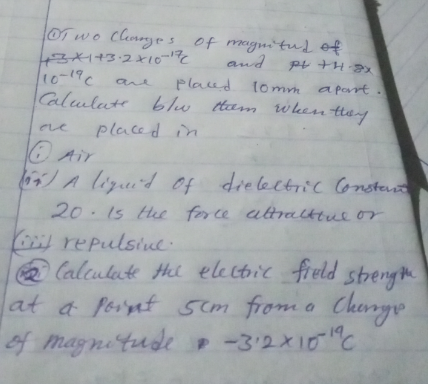 ① Two Charges of magnitud of
+3.2 x 10⁻¹⁹c and +4.8x
10⁻¹⁹c are placed 10mm apart.
Calculate b/w them when they
are placed in
① Air
(ii) A liquid of dielectric Constant
20. Is the force attractive or
(iii) repulsive.
② Calculate the electric field strength
at a point 5cm from a Charge
of magnitude -3.2x10⁻¹⁹C